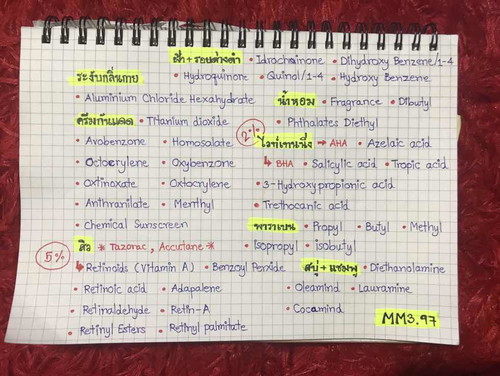 ฝ้า+รอยด่างดำ • Idrochinone • Dihydroxy Benzene/1-4
• Hydroquinone • Quinol/1-4 • Hydroxy Benzene
ระงับกลิ่นกาย
• Aluminium Chloride Hexahydrate
น้ำหอม • Fragrance • Dibutyl
• Phthalates Diethyl
ครีมกันแดด • Titanium dioxide
• Avobenzone • Homosalate
• Octocrylene • Oxybenzone
• Oxtinoxate • Oxtocrylene
• Anthranilate • Menthyl
• Chemical Sunscreen
2%
ไวท์เทนนิ่ง → AHA • Azelaic acid
↳ BHA • Salicylic acid • Tropic acid
• 3-Hydroxypropionic acid
• Trethocanic acid
พาราเบน • Propyl • Butyl • Methyl
• Isopropyl • isobutyl
สิว * Tazorac, Accutane *
5%
↳ Retinoids (Vitamin A) • Benzoyl Peroxide
• Retinoic acid • Adapalene
• Retinaldehyde • Retin-A
• Retinyl Esters • Retinyl palmitate
สบู่+แชมพู • Diethanolamine
• Oleamind • Lauramine
• Cocamind
MM3.97